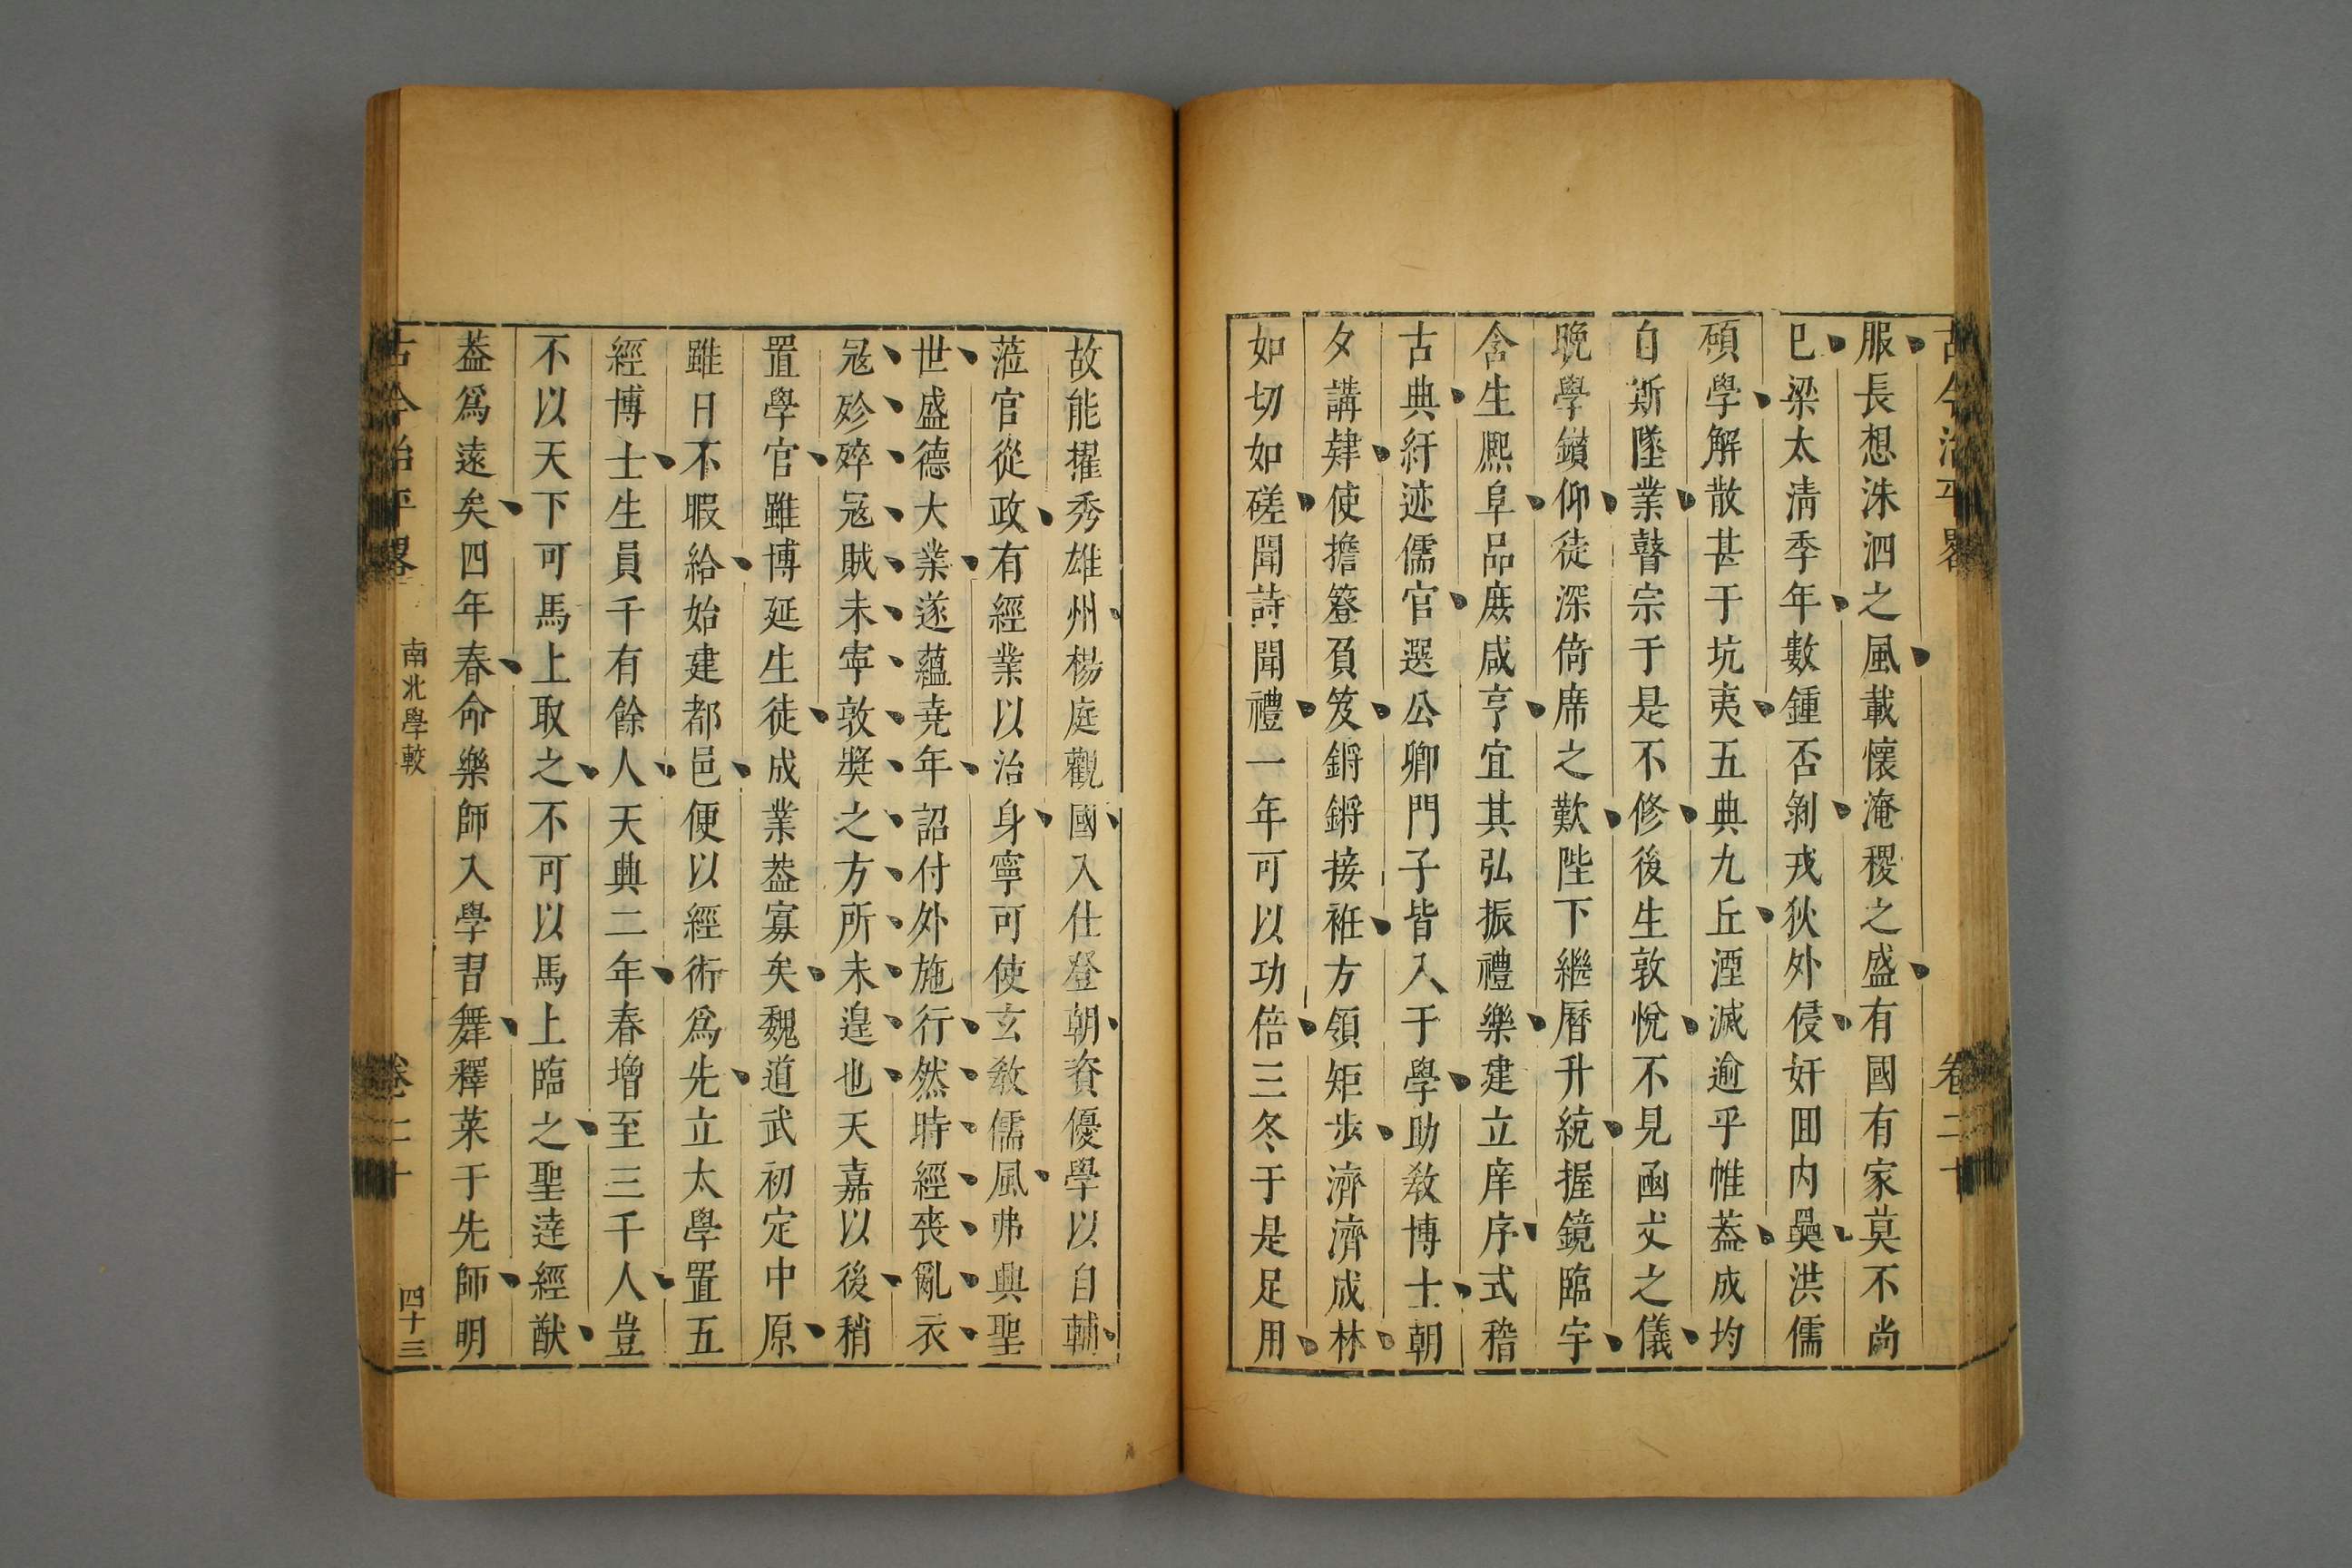 古今治平畧 卷二十
服長想洙泗之風載懷淹稷之盛有國有家莫不尚
巳梁太清季年數鍾否剝戎狄外侵奸回内奰洪儒
碩學解散甚于坑夷五典九丘湮滅逾乎帷葢成均
自斯墜業瞽宗于是不修後生敦悅不見函丈之儀
晚學鑽仰徒深倚席之歎陛下繼曆升統握鏡臨宇
含生熈阜品庶咸亨宜其弘振禮樂建立庠序式稽
古典紆迹儒官選公卿門子皆入于學助敎博士朝
夕講肄使擔簦負笈鏘鏘接袵方領矩步濟濟成林
如切如磋聞詩聞禮一年可以功倍三冬于是足用
故能擢秀雄州楊庭觀國入仕登朝資優學以自輔
蒞官從政有經業以治身寧可使玄敎儒風弗興聖
世盛德大業遂蘊尭年詔付外施行然時經喪亂衣
冠殄瘁冦賊未寧敦奬之方所未遑也天嘉以後稍
置學官雖博延生徒成業葢寡矣魏道武初定中原
雖日不暇給始建都邑便以經術爲先立太學置五
經博士生員千有餘人天興二年春增至三千人豈
不以天下可馬上取之不可以馬上臨之聖逹經猷
葢爲遠矣四年春命樂師入學習舞釋菜于先師明
古今治平畧 南北學較 卷二十 四十三